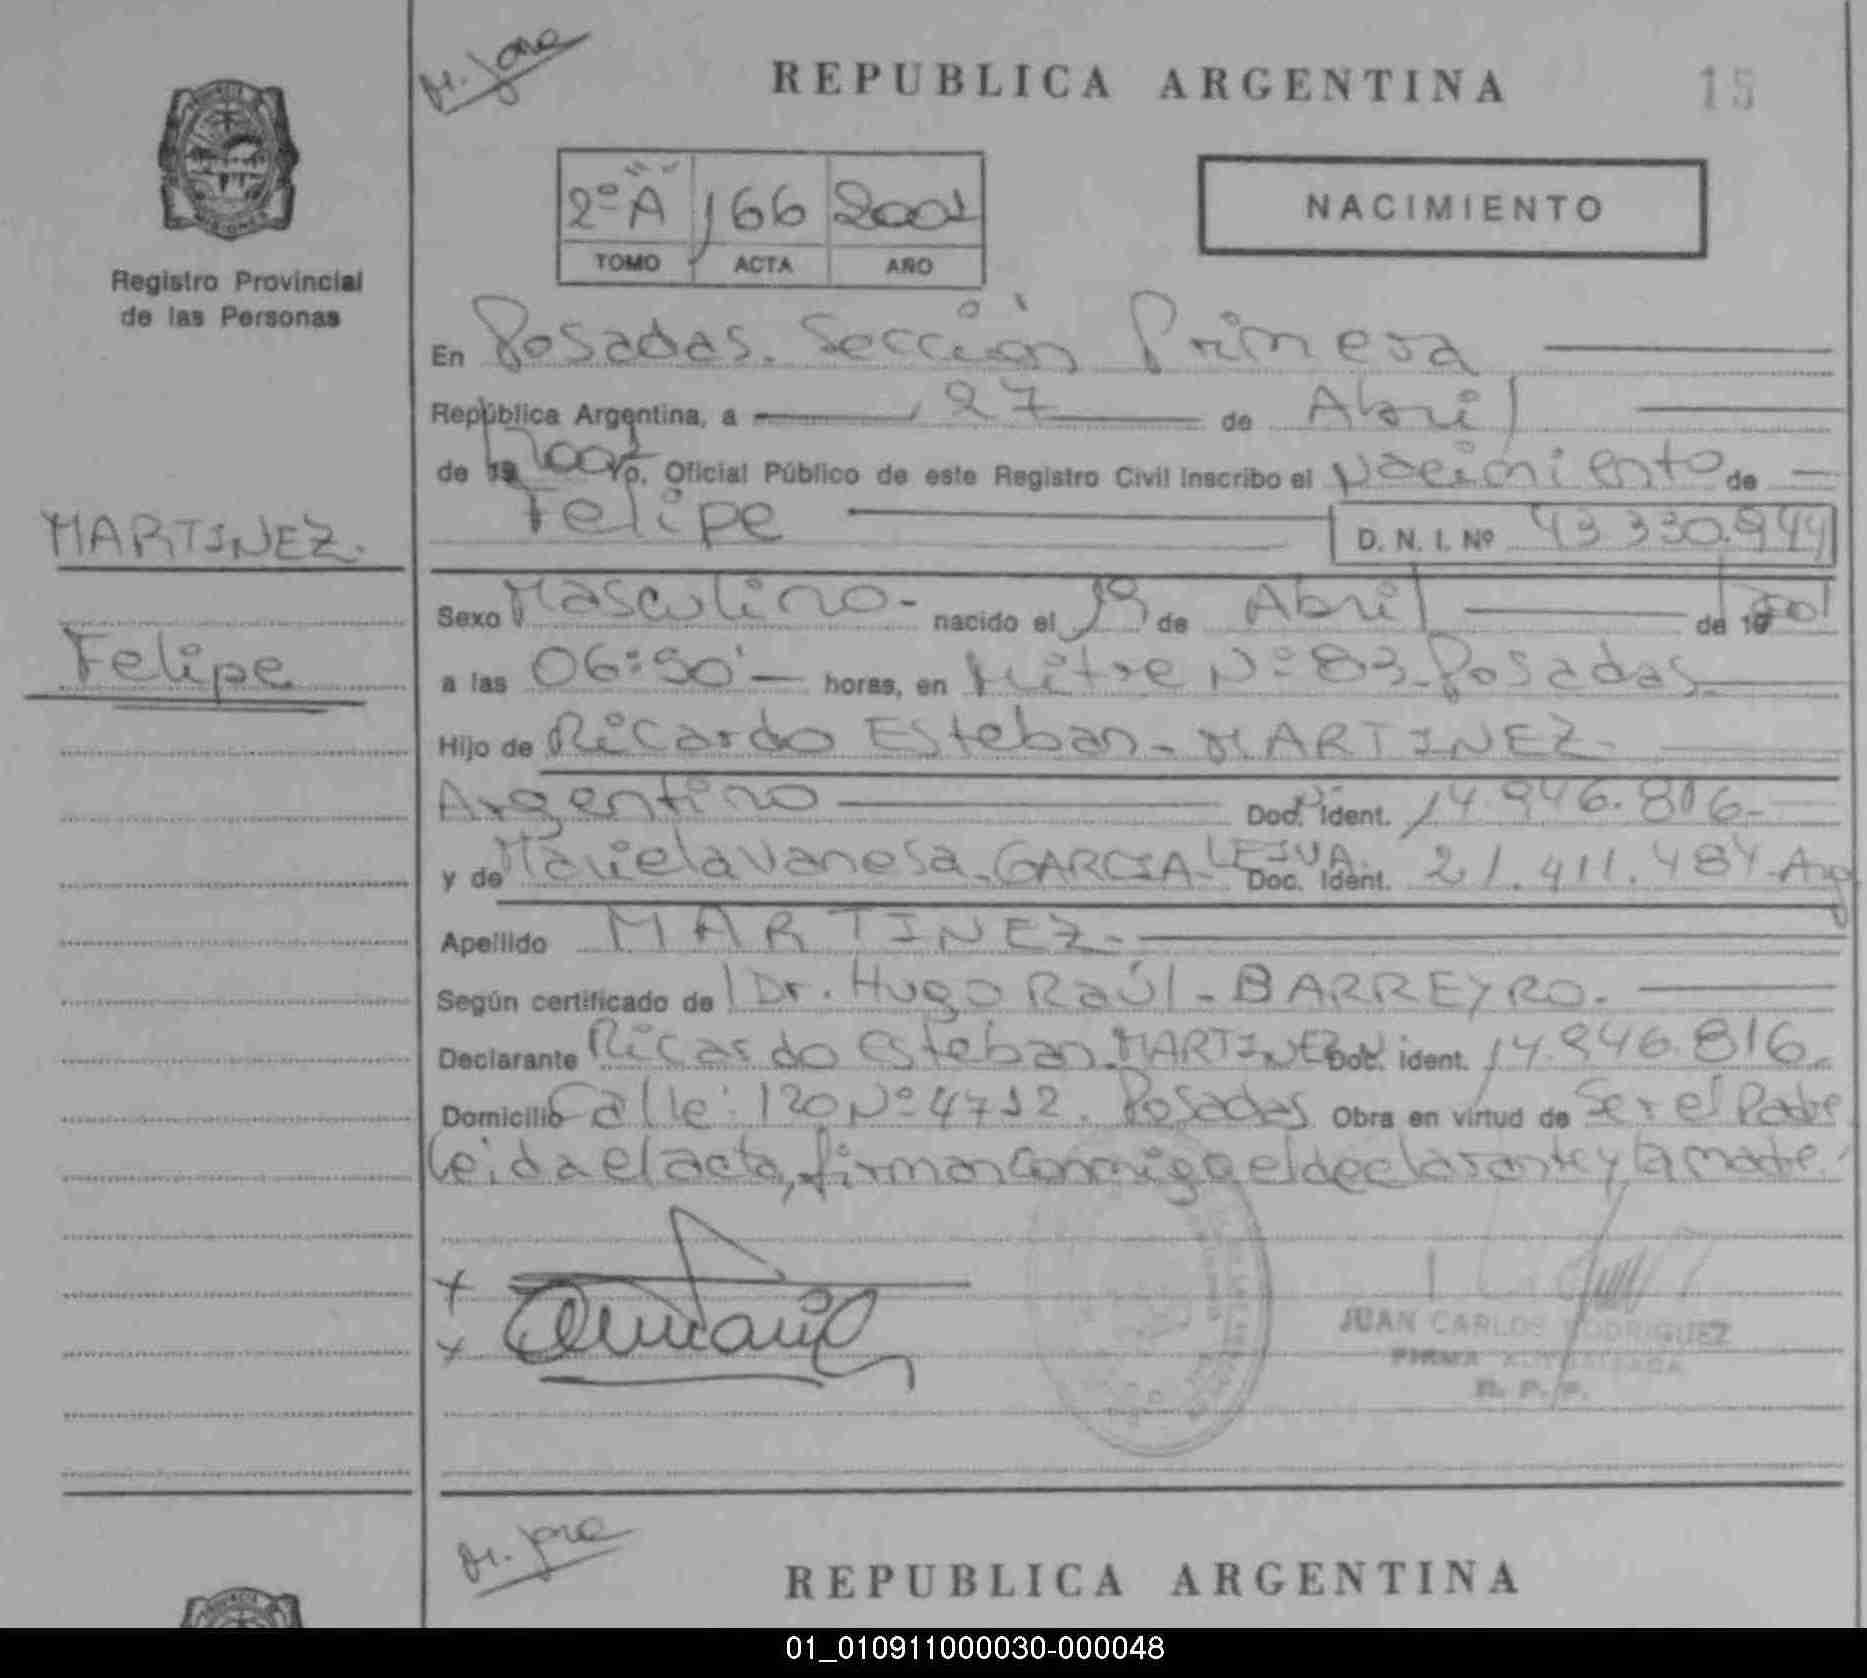 REPUBLICA ARGENTINA
15
2º A 166 2001
TOMO ACTA AÑO
NACIMIENTO
Registro Provincial
de las Personas
En Posadas. Sección Primera
República Argentina, a 27 de Abril
de 2001 Yo, Oficial Público de este Registro Civil Inscribo el Nacimiento de
Felipe D. N. I. Nº 43.330.944
MARTINEZ.
Felipe
Sexo Masculino - nacido el 19 de Abril de 2001
a las 06:50' horas, en Mitre Nº 83. Posadas.
Hijo de Ricardo Esteban - MARTINEZ.
Argentino Doc. Ident. 14.946.816-
y de Mariela Vanesa - GARCIA - LEIVA. Doc. Ident. 21.411.484 - Arg
Apellido MARTINEZ.
Según certificado de Dr. Hugo Raúl - BARREYRO.
Declarante Ricardo Esteban - MARTINEZ Doc. ident. 14.946.816.
Domicilio Calle: 120 Nº 4712. Posadas Obra en virtud de Ser el Padre
Leida el acta, firman conmigo el declarante y la madre.
JUAN CARLOS RODRIGUEZ
FIRMA AUTORIZADA
R. P. P.
REPUBLICA ARGENTINA
01_010911000030-000048